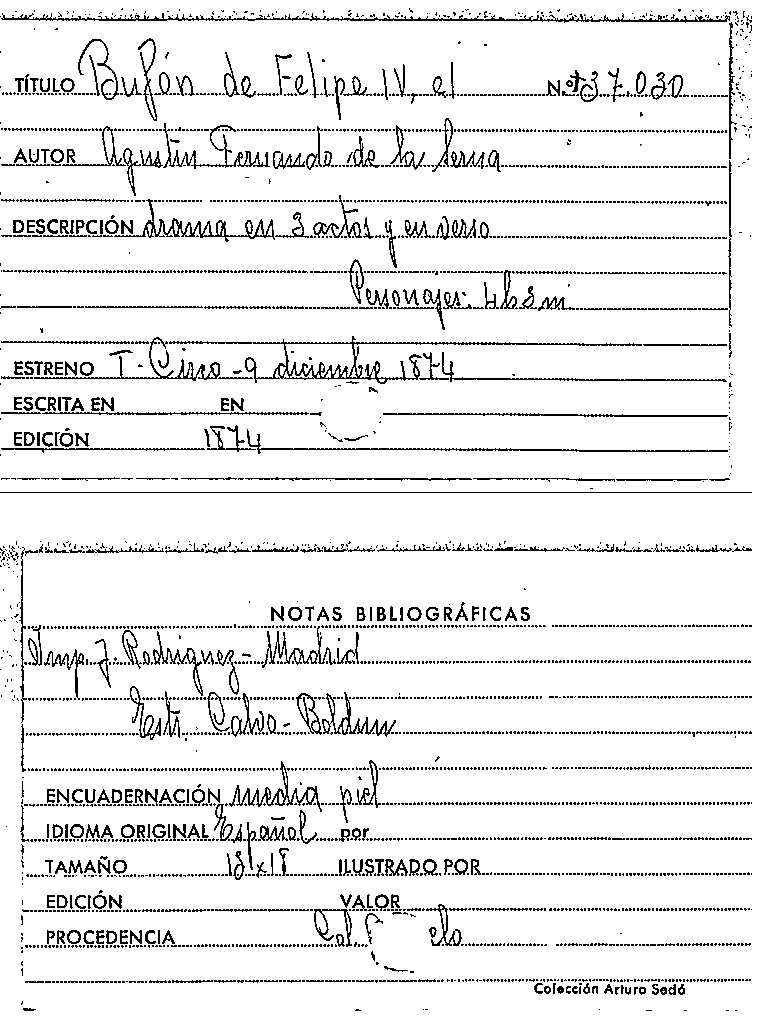 TÍTULO Bufón de Felipe IV, el N.º 37.030
AUTOR Agustín Fernando de la Serna
DESCRIPCIÓN drama en 3 actos y en verso
Personajes: 4h 3m
ESTRENO T. Circo - 9 diciembre 1874
ESCRITA EN EN
EDICIÓN 1874
NOTAS BIBLIOGRÁFICAS
Imp. J. Rodriguez - Madrid
Estr. Calvo - Boldun
ENCUADERNACIÓN media piel
IDIOMA ORIGINAL Español por
TAMAÑO ILUSTRADO POR
EDICIÓN VALOR
PROCEDENCIA Col.
Colección Arturo Sedó